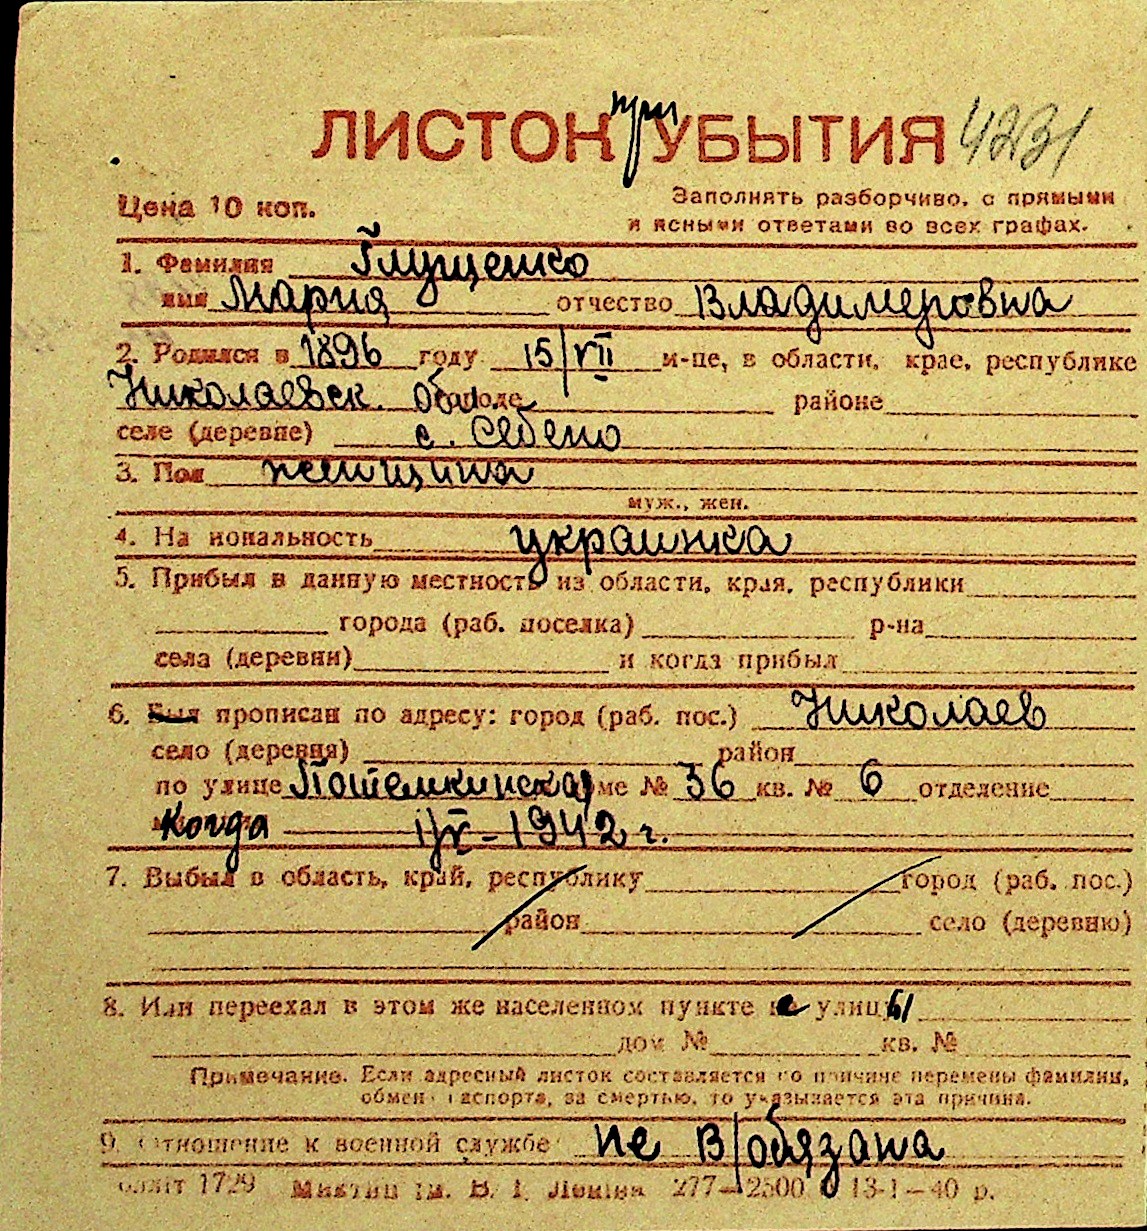 ЛИСТОК при УБЫТИЯ 4231
Цена 10 коп.
Заполнять разборчиво, с прямыми
и ясными ответами во всех графах.
1. Фамилия Глущенко
имя Мария отчество Владимеровна
2. Родился в 1896 году 15/VII м-це, в области, крае, республике
Николаевск. обл. городе районе
селе (деревне) с. Себено
3. Пол женщина
муж., жен.
4. Национальность украинка
5. Прибыл в данную местность из области, края, республики
города (раб. поселка) р-на
села (деревни) и когда прибыл
6. Был прописан по адресу: город (раб. пос.) Николаев
село (деревня) район
по улице Потемкинская доме № 36 кв. № 6 отделение
Когда 1/V-1942 г.
7. Выбыл в область, край, республику город (раб. пос.)
район село (деревню)
8. Или переехал в этом же населенном пункте с улицы
дом № кв. №
Примечание. Если адресный листок составляется по причине перемены фамилии,
обмена паспорта, за смертью, то указывается эта причина.
9. Отношение к военной службе не в/обязана
облліт 1729 Миктип ім. В. І. Леніна 277—2500 13-1—40 р.